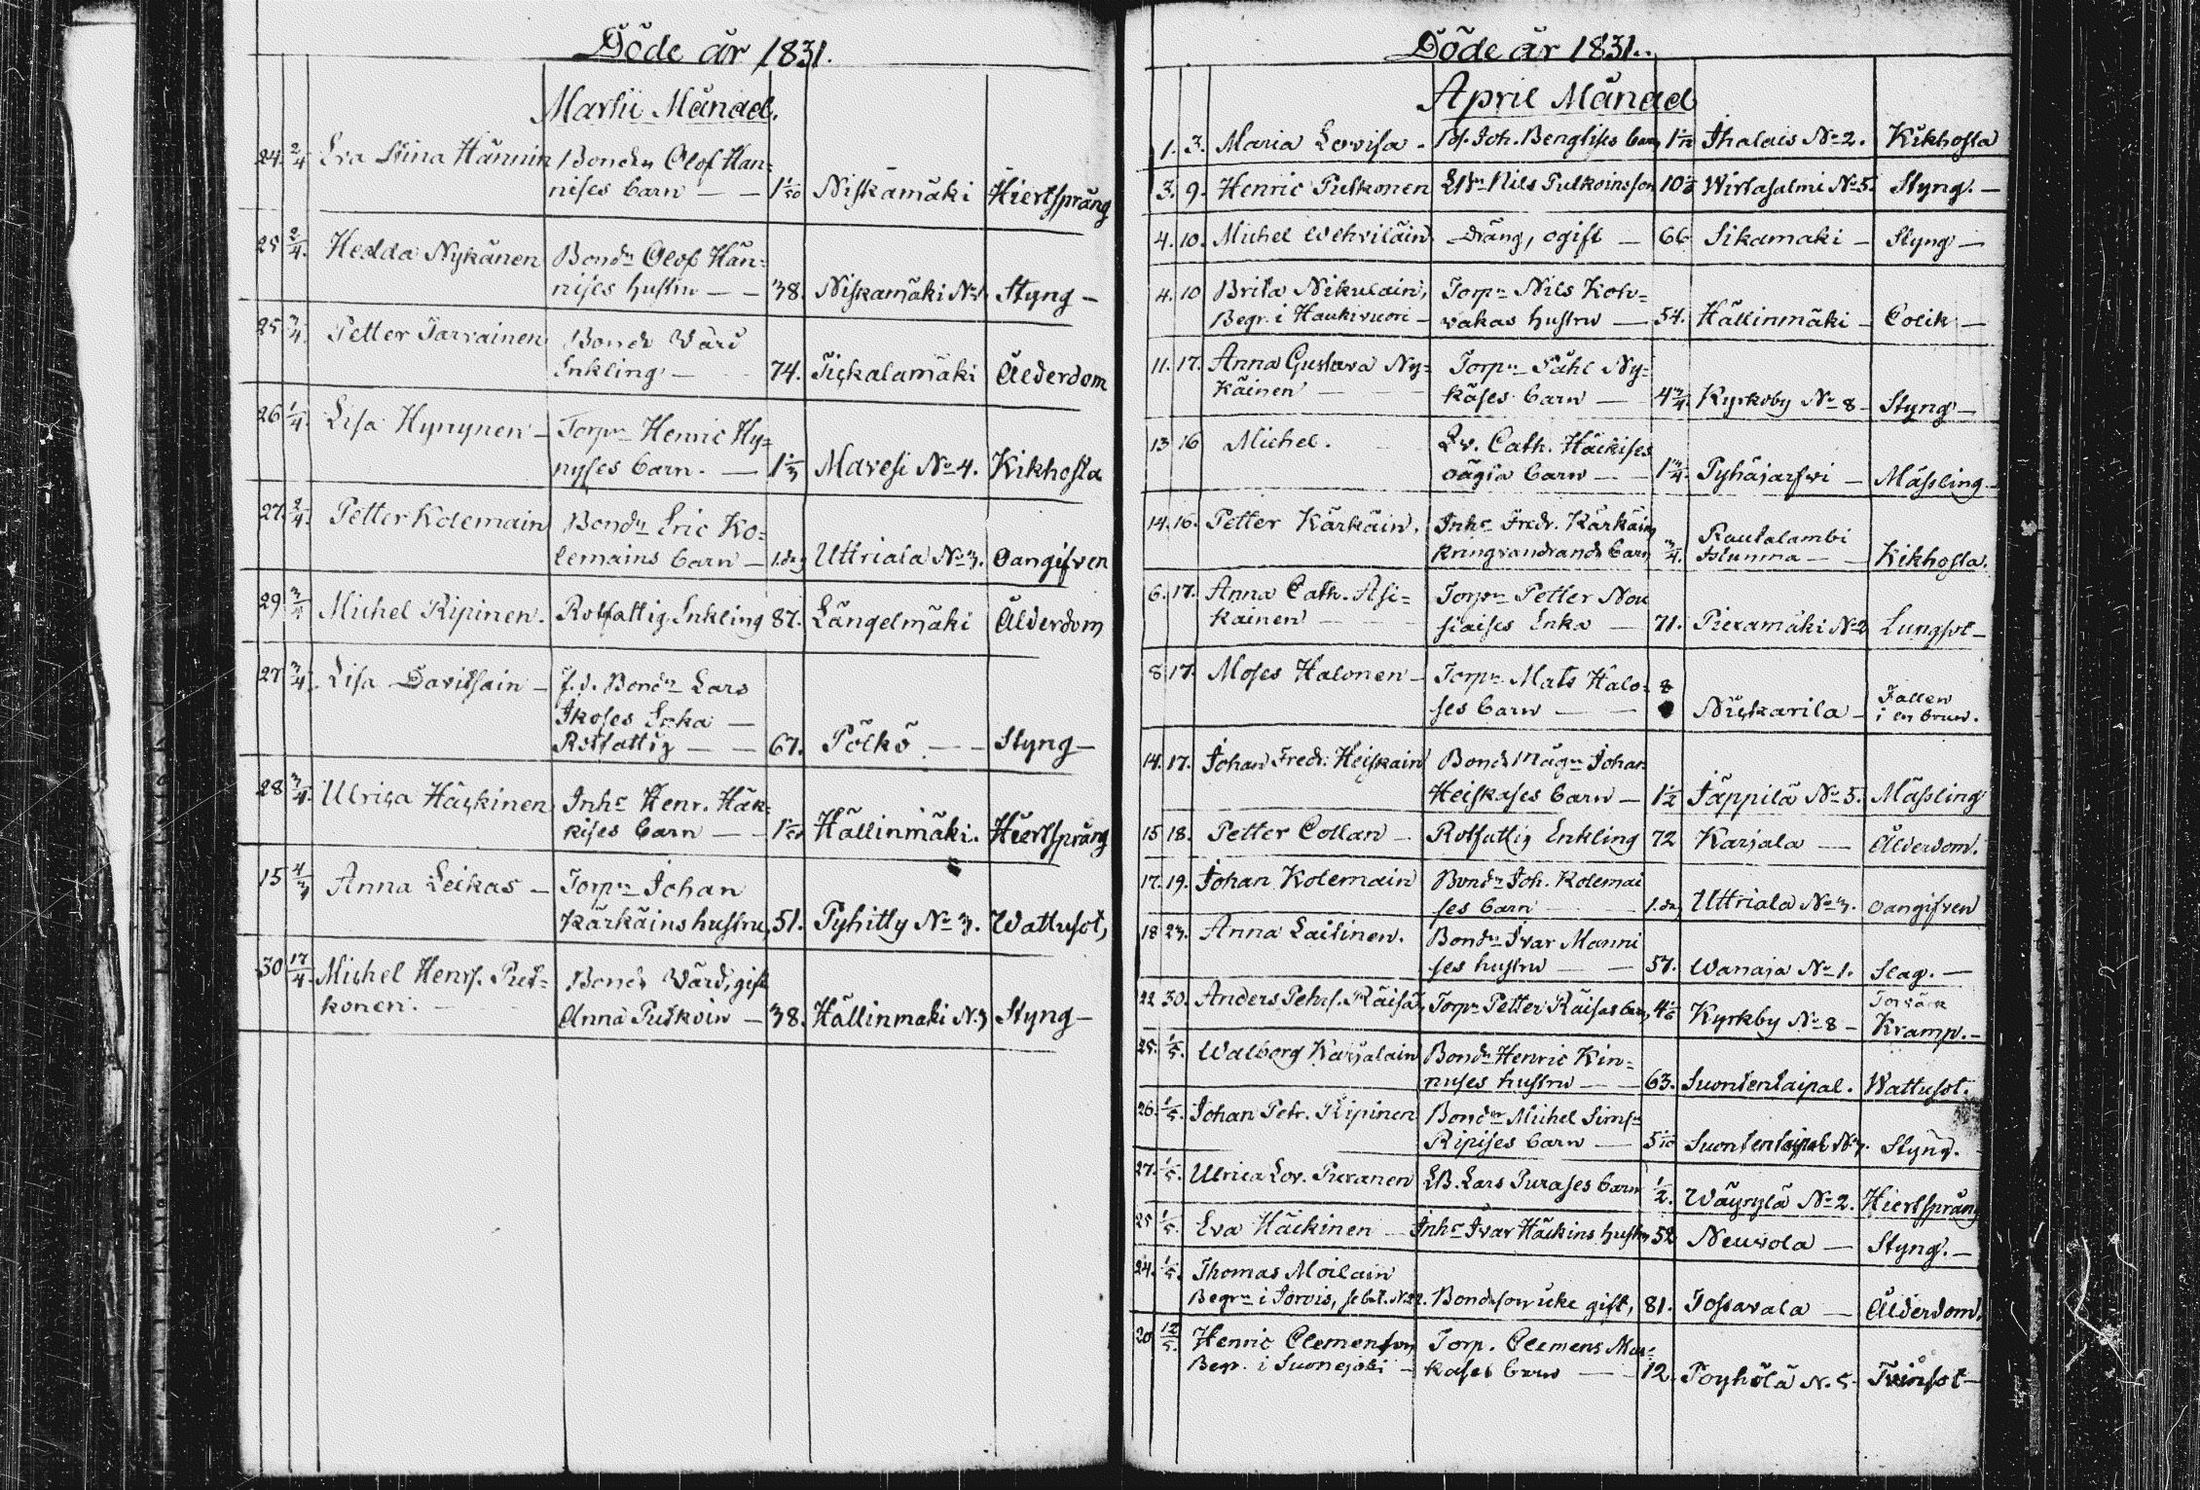 Döde år 1831.
Martii Månad.
24. 2/4 Eva Stina Hännin Bondn Olof Hän=
nises barn — — Niskamäki Hiertspräng
25 2/4. Hedda Nykänen Bondn Olof Hän=
nises hustru — — 38. Niskamäki Styng —
25 3/4. Petter Tarvainen Bonde Värd
Enkling — 74. Tiskalamäki Ålderdom
26 1/4. Lisa Hynynen — Torpn Henric Hy=
nyses barn. — 1 1/3 Mavesi No 4. Kikhosta
27. 2/4. Petter Kolemain Bondn Eric Ko=
lemains barn — 1.dag Uttriala No 3. Oangifven
29 3/4 Michel Ripinen. Rotfattig Enkling 87. Längelmäki Ålderdom
27 3/4. Lisa Davitsain — f.d. Bondn Lars
Ikoses Enka —
Rotfattig — — 67. Pölkö — — Styng —
28 3/4. Ulrica Häckinen Inhs Henr. Häk=
kises barn — — Hällinmäki. Hiertspräng
15 4/3 Anna Leikas — Torpn Johan
Kärkäins hustru, 51. Pyhitty No 3. Wattusot,
30 17/4 Michel Henrs. Put=
konen. — Bonde Värd, gift
Anna Putkoin — 38. Hällinmaki N.3 Styng —
Döde år 1831.
April Månad
1. 3. Maria Lovisa. Joh. Bengtises barn Ihalais No 2. Kikhosta
3. 9. Henric Putkonen Nils Putkoinsson 10 1/2 Wirtasalmi No 5. Styng. —
4. 10. Michel Wehviläin Dräng, ogift — 66 Sikamaki — Styng —
4. 10 Brita Nikulain, Torpn Nils Kolv=
Begr. i Haukivuori — vakas hustru — 54. Hällinmäki — Colik —
11. 17. Anna Gustava Ny= Torpn Påhl Ny=
käinen — käses barn — 4 3/4. Kyrkoby No 8 — Styng —
13 16 Michel. Qv. Cath. Häckises
oägta barn — — 1 3/4. Pyhäjärfwi — Mässling —
14. 16. Petter Kärkäin, Inhs Fredr. Kärkäin
kringvandrande barn 3/4. Rautalambi
Istunma — Kikhosta.
6. 17. Anna Cath. Asi= Torpn Petter Nou
kainen — — siaises Enka — 71. Pieramäki No 2 Lungsot —
8 17. Moses Halonen — Torpn Mats Halo=
ses barn — — 8 Nickarila — Fallen
i en brun.
14. 17. Johan Fredr. Heiskain Bonde Mågn Johan
Heiskases barn — 1 1/2 Jäppilä No 5. Mässling
15 18. Petter Collan — Rotfattig Enkling 72 Karjala — Ålderdom.
17. 19. Johan Kolemain Bondn Joh. Kolemai
ses barn 1.dag Uttriala No 3. Oangifven
18 23. Anna Laitinen. Bondn Ivar Manni
ses hustru — — 57. Wanaja No 1. Slag. —
22 30. Anders Pehrs. Räisä, Torpn Petter Räisäs barn, 4 1/6 Kyrkby No 8 — Torvärk
Kramp. —
25. 1/5. Walborg Karjalain Bondn Henric Kin=
nuses hustru — — 63. Suontentaipal. Wattusot.
26. 1/5. Johan Petr. Ripinen Bondn Michel Sims:
Ripises barn — Suontentaipal Styng.
27. 1/5. Ulrica Lov. Puranen LB. Lars Purases barn 1/2. Wäyrylä No 2. Hiertspräng
25 1/5. Eva Häckinen — Inhs Ivar Häckins hustru 52 Neuvola — Styng. —
24. 1/5. Thomas Moilain
Begrn i Jorois, Bondeson icke gift, 81. Tossavala — Ålderdom.
20 12/5. Henric Clemenson, Torp. Clemens Mus=
Begr. i Suonejoki — kases barn — — 12. Toyhölä N. 5. Tvinsot —